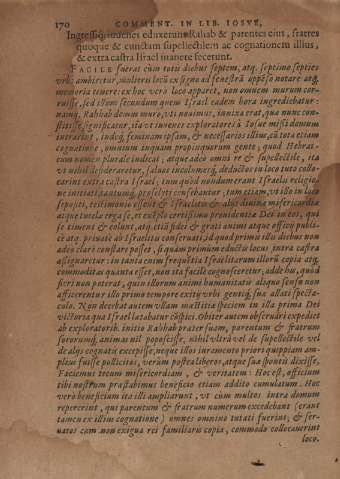 170 COMMENT. IN LIB. IOSVE,
Ingressiq; iuuenes eduxerunt Rahab & parentes eius, fratres
quoque & cunctam supellectilem ac cognationem illius,
& extra castra Israel manere fecerunt.
FACILE fuerat cùm toti diebus septem, atq. septimo septies
vrbs ambiretur, mulieris locũ ex signo ad fenestrã appẽso notare atq.
memoria tenere: ex hoc verò loco apparet, non omnem murum cor-
ruisse, sed illom secundum quem Israel eadem hora ingrediebatur:
namq. Rahhab domus muro, vti nouimus, innixa erat, qua nunc con-
stitisse significatur, ita vt iuuenes exploratores à Iosue missi domum
intrarint, indeq. feminam ipsam, & necessarios illius, cũ tota etiam
cognatione, omnium inquam propinquorum gente, quod Hebrai-
cum nomen plurale indicat; atque adeo omni re & supellectile, ita
vt nihil desideraretur, saluos incolumesq. deductos in loco tuto collo-
carint extra castra Israel; cum quòd nondum erant Israelis religio-
ne initiati, tantumq. proselyti censebantur; tum etiam, vt illo in loco
sepositi, testimonio essent & Israelitis & aliis diuina misericordia
atque tutela erga se, et exẽplo certissimo prouidentia Dei in eos, qui
se timent & colunt, atq. etiã fidei & grati animi atque officij publi-
cè atq. priuatè ab Israelitis conseruati, id quod primis illis diebus non
adeo clarè constare posset, si quàm primùm eductis locus intra castra
assignaretur: in tanta enim frequẽtia Israelitarum illorũ copia atq.
commoditas quanta esset, non ita facile cognosceretur; adde hu, quòd
fieri non poterat, quin illorum animi humanitatis aliquo sensu non
afficerentur illo primo tempore exitij vrbi gentiq. sua allati specta-
culo. Non decebat autem vllam mœstitia speciem in illa prima Dei
victoria qua Israel latabatur cõspici. Obiter autem obseruari expedit
ab exploratorib. initio Rahhab prater suam, parentum & fratrum
sororumq. animas nil poposcisse, nihil vltrà vel de supellectile vel
de alijs cognatis excepisse, neque illos iuramento priori quippiam am-
plius fuisse pollicitos, verùm postea liberè, atque sua sponte dixisse,
Faciemus tecum misericordiam, & veritatem: Hoc est, officium
tibi nostrum prastabimus beneficio etiam addito cumulatum. Hoc
verò beneficium ita illi ampliarunt, vt cùm multos intra domum
reperirent, qui parentum & fratrum numerum excedebant (erant
tamen ex illius cognatione) omnes omnino tutati fuerint, & ser-
uatos cum non exigua rei familiaris copia, commodo collocauerint
loco.